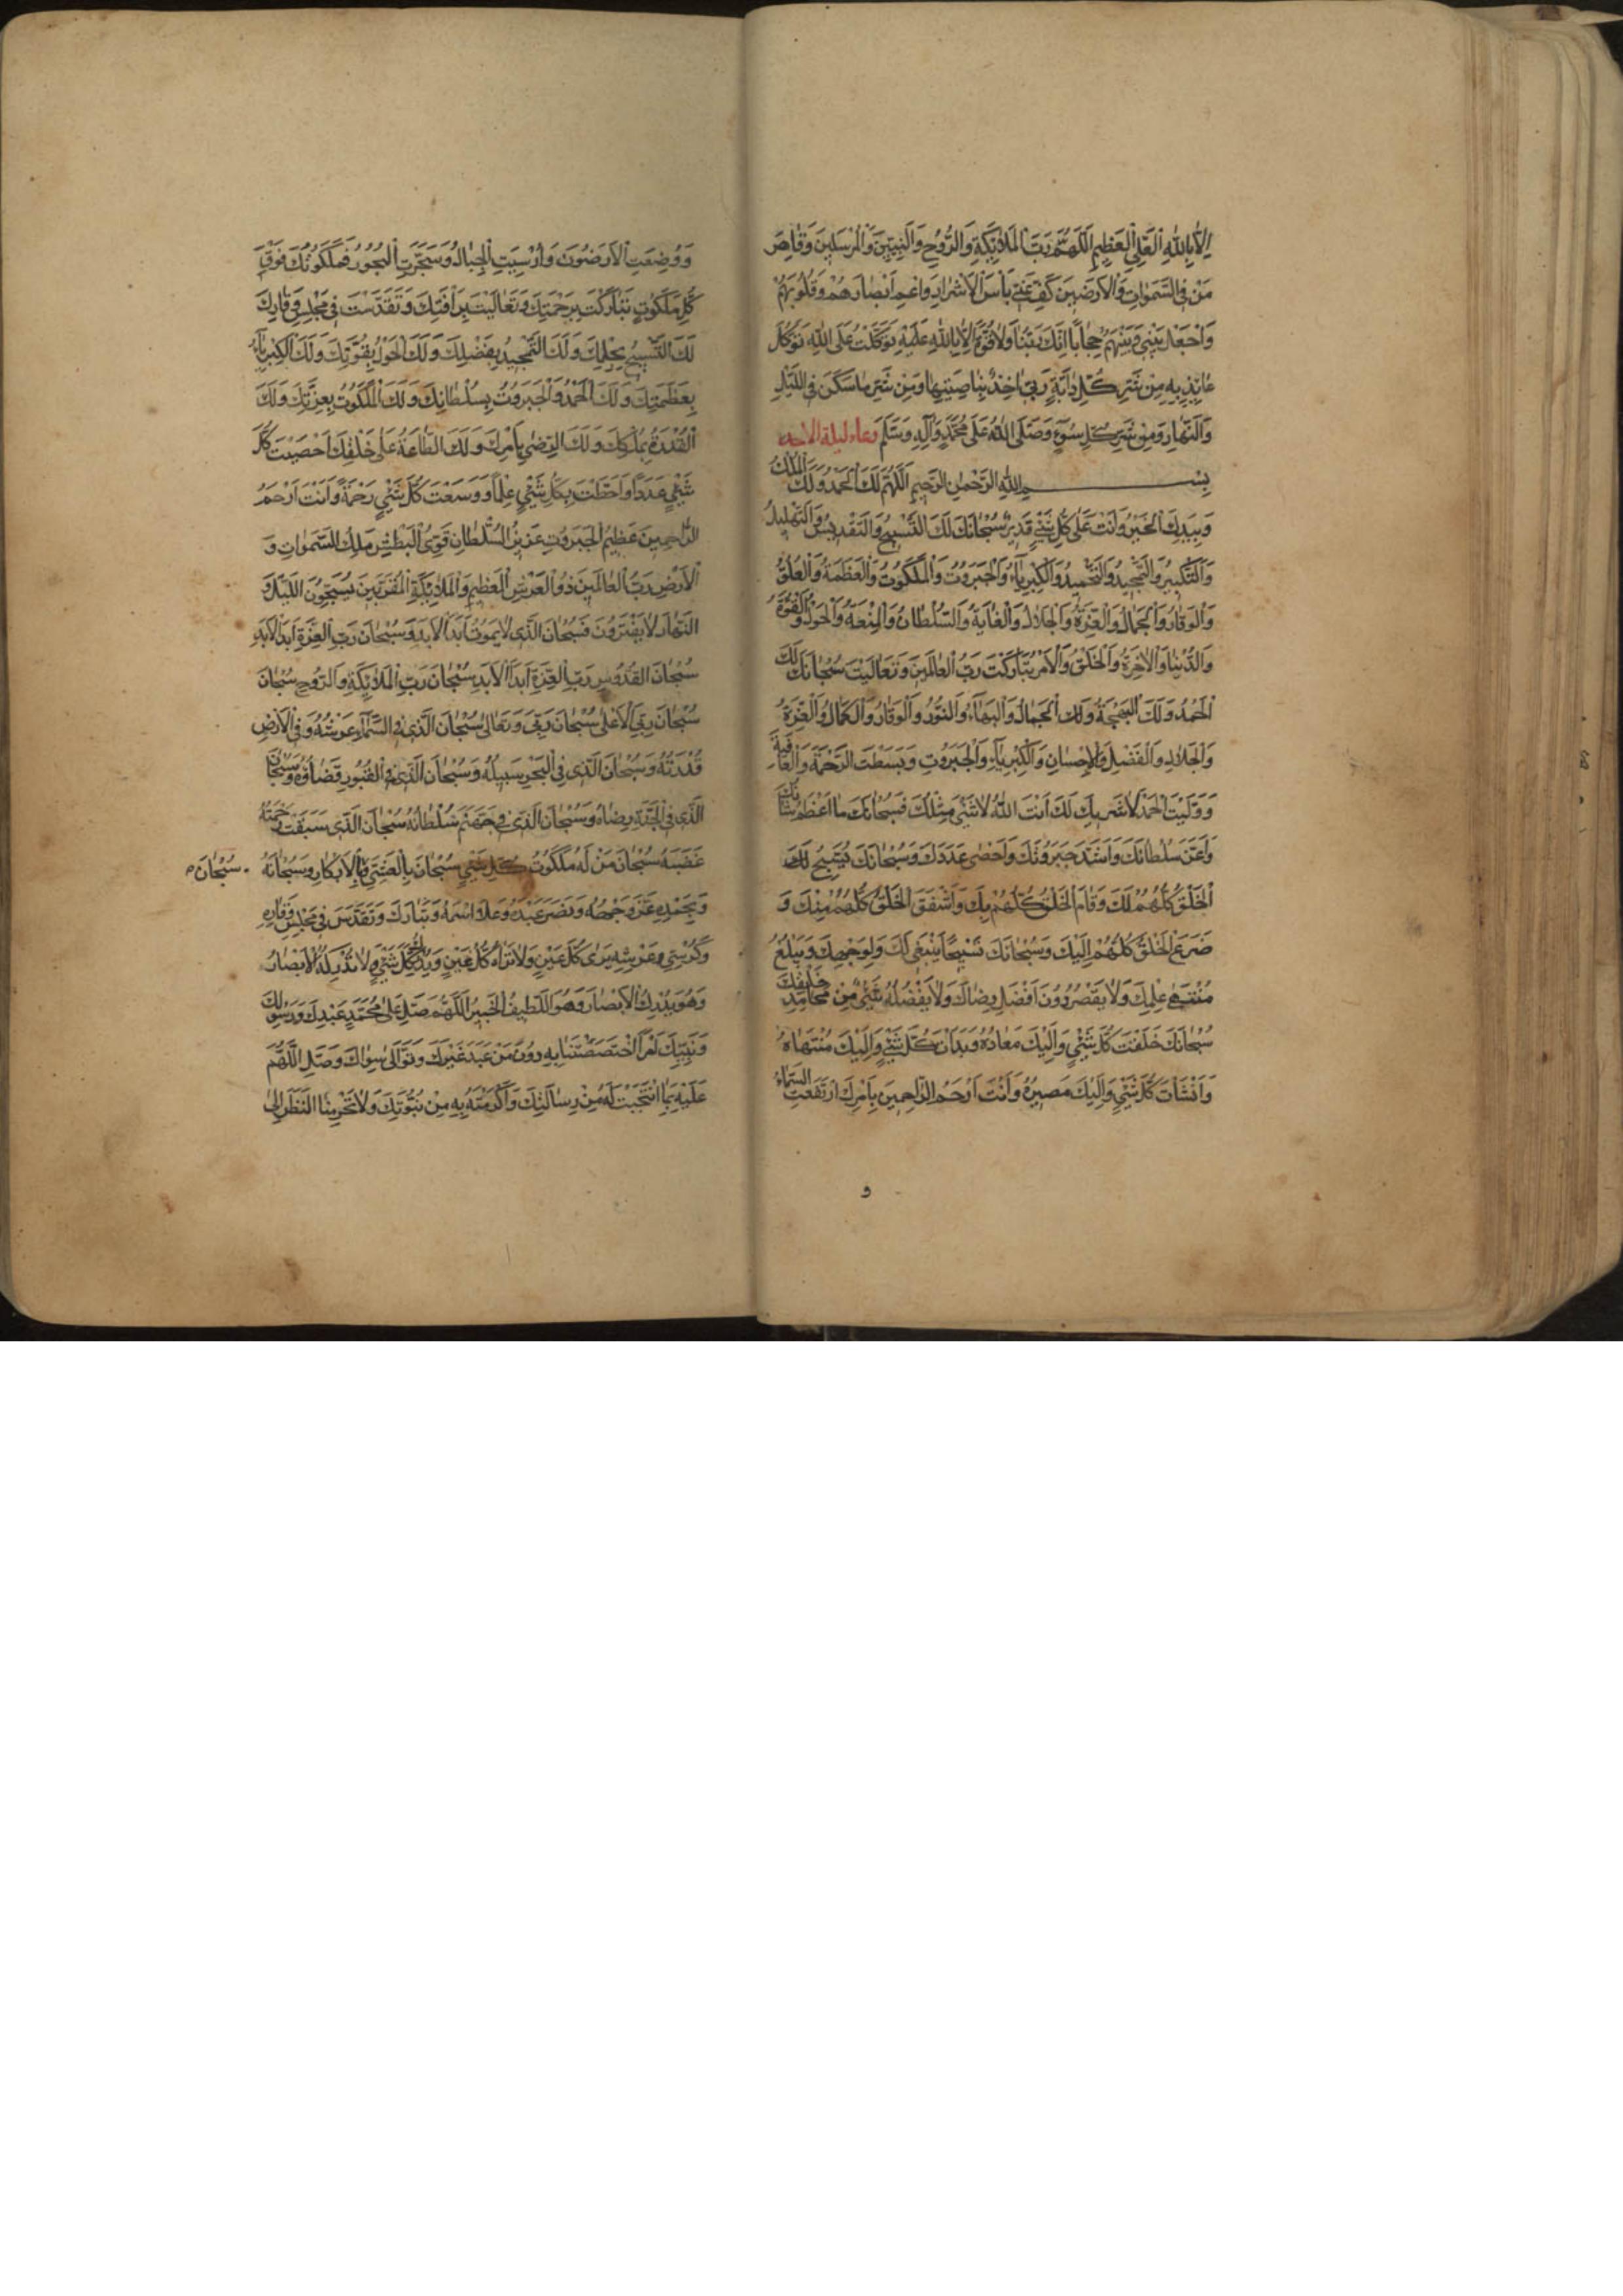 اِلّا بِاللهِ الْعَلِيِّ الْعَظِيمِ اَللّهُمَّ رَبَّ الْمَلائِكَةِ وَالرُّوحِ وَالنَّبِيّينَ وَالْمُرْسَلينَ وَقاصِرَ
مَنْ فِي السَّمواتِ وَالْاَرَضينَ كُفَّ عَنّي بَأْسَ الْاَشْرارِ وَاَعْمِ اَبْصارَهُمْ وَقُلُوبَهُمْ
وَاجْعَلْ بَيْني وَبَيْنَهُمْ حِجاباً اِنَّكَ رَبُّنا وَلا قُوَّةَ اِلّا بِاللهِ عَلَيْهِ تَوَكَّلْتُ عَلَى اللهِ تَوَكُّلَ
عائِذٍ بِهِ مِنْ شَرِّ كُلِّ دابَّةٍ رَبّي اخِذٌ بِناصِيَتِها وَمِنْ شَرِّ ما سَكَنَ فِي اللَّيْلِ
وَالنَّهارِ وَمِنْ شَرِّ كُلِّ سُوءٍ وَصَلَّى اللهُ عَلى مُحَمَّدٍ وَآلِهِ وَسَلَّمَ دعاء ليلة الاحد
بِسْمِ اللهِ الرَّحْمنِ الرَّحيمِ اَللّهُمَّ لَكَ الْحَمْدُ وَلَكَ الْمُلْكُ
وَبِيَدِكَ الْخَيْرُ وَاَنْتَ عَلى كُلِّ شَيْءٍ قَديرٌ سُبْحانَكَ لَكَ التَّسْبيحُ وَالتَّقْديسُ وَالتَّهْليلُ
وَالتَّكْبيرُ وَالتَّمْجيدُ وَالتَّحْميدُ وَالْكِبْرِياءُ وَالْجَبَرُوتُ وَالْمَلَكُوتُ وَالْعَظَمَةُ وَالْعُلُوُّ
وَالْوَقارُ وَالْجَمالُ وَالْعِزَّةُ وَالْجَلالُ وَالْغايَةُ وَالسُّلْطانُ وَالْمَنْعَةُ وَالْحَوْلُ وَالْقُوَّةُ
وَالدُّنْيا وَالْاخِرَةُ وَالْخَلْقُ وَالْاَمْرُ تَبارَكْتَ رَبُّ الْعالَمينَ وَتَعالَيْتَ سُبْحانَكَ لَكَ
الْحَمْدُ وَلَكَ الْبَهْجَةُ وَلَكَ الْجَمالُ وَالْبَهاءُ وَالنُّورُ وَالْوَقارُ وَالْكَمالُ وَالْعِزَّةُ
وَالْجَلالِ وَالْفَضْلِ وَالْاِحْسانِ وَالْكِبْرِياءِ وَالْجَبَرُوتِ وَبَسَطْتَ الرَّحْمَةَ وَالْعافِيَةَ
وَوَلَّيْتَ الْحَمْدَ لا شَريكَ لَكَ اَنْتَ اللهُ لا شَيْءَ مِثْلُكَ فَسُبْحانَكَ ما اَعْظَمَ شَأْنَكَ
وَاَعَزَّ سُلْطانَكَ وَاَشَدَّ جَبَرُوتَكَ وَاَحْصى عَدَدَكَ وَسُبْحانَكَ يُسَبِّحُ لَكَ
الْخَلْقُ كُلُّهُمْ لَكَ وَقامَ الْخَلْقُ كُلُّهُمْ بِكَ وَاَشْفَقَ الْخَلْقُ كُلُّهُمْ مِنْكَ وَ
ضَرَعَ الْخَلْقُ كُلُّهُمْ اِلَيْكَ وَسُبْحانَكَ تَسْبيحاً يَنْبَغي لَكَ وَلِوَجْهِكَ وَيَبْلُغُ
مُنْتَهى عِلْمِكَ وَلا يَقْصُرُ دُونَ اَفْضَلِ رِضاكَ وَلا يَفْضُلُهُ شَيْءٌ مِنْ مَحامِدِ خَلْقِكَ
سُبْحانَكَ خَلَقْتَ كُلَّ شَيْءٍ وَاِلَيْكَ مَعادُهُ وَبَدَأْتَ كُلَّ شَيْءٍ وَاِلَيْكَ مُنْتَهاهُ
وَاَنْشَأْتَ كُلَّ شَيْءٍ وَاِلَيْكَ مَصيرُهُ وَاَنْتَ اَرْحَمُ الرّاحِمينَ بِاَمْرِكَ ارْتَفَعَتِ السَّماءُ
و
وَوُضِعَتِ الْاَرَضُونَ وَاُرْسِيَتِ الْجِبالُ وَسُجِّرَتِ الْبُحُورُ فَمَلَكُوتُكَ فَوْقَ
كُلِّ مَلَكُوتٍ تَبارَكْتَ بِرَحْمَتِكَ وَتَعالَيْتَ بِرَأْفَتِكَ وَتَقَدَّسْتَ في مَجْلِسِ وَقارِكَ
لَكَ التَّسْبيحُ بِحِلْمِكَ وَلَكَ التَّمْجيدُ بِفَضْلِكَ وَلَكَ الْحَوْلُ بِقُوَّتِكَ وَلَكَ الْكِبْرِياءُ
بِعَظَمَتِكَ وَلَكَ الْحَمْدُ وَالْجَبَرُوتُ بِسُلْطانِكَ وَلَكَ الْمَلَكُوتُ بِعِزَّتِكَ وَلَكَ
الْقُدْرَةُ بِمُلْكِكَ وَلَكَ الرِّضى بِاَمْرِكَ وَلَكَ الطّاعَةُ عَلى خَلْقِكَ اَحْصَيْتَ كُلَّ
شَيْءٍ عَدَداً وَاَحَطْتَ بِكُلِّ شَيْءٍ عِلْماً وَوَسِعْتَ كُلَّ شَيْءٍ رَحْمَةً وَاَنْتَ اَرْحَمُ
الرّاحِمينَ عَظيمُ الْجَبَرُوتِ عَزيزُ السُّلْطانِ قَوِيُّ الْبَطْشِ مَلِكُ السَّمواتِ وَ
الْاَرْضِ رَبُّ الْعالَمينَ ذُو الْعَرْشِ الْعَظيمِ وَالْمَلائِكَةِ الْمُقَرَّبينَ يُسَبِّحُونَ اللَّيْلَ وَ
النَّهارَ لا يَفْتَرُونَ فَسُبْحانَ الَّذي لا يَمُوتُ اَبَدَ الْاَبَدِ وَسُبْحانَ رَبِّ الْعِزَّةِ اَبَدَ الْاَبَدِ
سُبْحانَ الْقُدُّوسِ رَبِّ الْعِزَّةِ اَبَدَ الْاَبَدِ سُبْحانَ رَبِّ الْمَلائِكَةِ وَالرُّوحِ سُبْحانَ
سُبْحانَ رَبِّيَ الْاَعْلى سُبْحانَ رَبّي وَتَعالى سُبْحانَ الَّذي فِي السَّماءِ عَرْشُهُ وَفِي الْاَرْضِ
قُدْرَتُهُ وَسُبْحانَ الَّذي فِي الْبَحْرِ سَبيلُهُ وَسُبْحانَ الَّذي فِي الْقُبُورِ قَضاؤُهُ وَسُبْحانَ
الَّذي فِي الْجَنَّةِ رِضاهُ وَسُبْحانَ الَّذي في جَهَنَّمَ سُلْطانُهُ سُبْحانَ الَّذي سَبَقَتْ رَحْمَتُهُ
غَضَبَهُ سُبْحانَ مَنْ لَهُ مَلَكُوتُ كُلِّ شَيْءٍ سُبْحانَ بِالْعَشِيِّ وَالْاِبْكارِ وَسُبْحانَهُ سُبْحانَ
وَبِحَمْدِهِ عَزَّ وَجْهُهُ وَنَصَرَ عَبْدَهُ وَعَلا اسْمُهُ وَتَبارَكَ وَتَقَدَّسَ في مَجْلِسِ وَقارِهِ
وَكُرْسِيِّ عَرْشِهِ يَرى كُلَّ عَيْنٍ وَلا تَراهُ كُلُّ عَيْنٍ وَيُدْرِكُ كُلَّ شَيْءٍ وَلا تُدْرِكُهُ الْاَبْصارُ
وَهُوَ يُدْرِكُ الْاَبْصارَ وَهُوَ اللَّطيفُ الْخَبيرُ اَللّهُمَّ صَلِّ عَلى مُحَمَّدٍ عَبْدِكَ وَرَسُولِكَ
وَنَبِيِّكَ اَمْراً اخْتَصَصْتَنا بِهِ دُونَ مَنْ عَبَدَ غَيْرَكَ وَتَوَلّى سِواكَ وَصَلِّ اللّهُمَّ
عَلَيْهِ بِمَا انْتَجَبْتَ لَهُ مِنْ رِسالَتِكَ وَاَكْرَمْتَهُ بِهِ مِنْ نُبُوَّتِكَ وَلا تَحْرِمْنَا النَّظَرَ اِلى